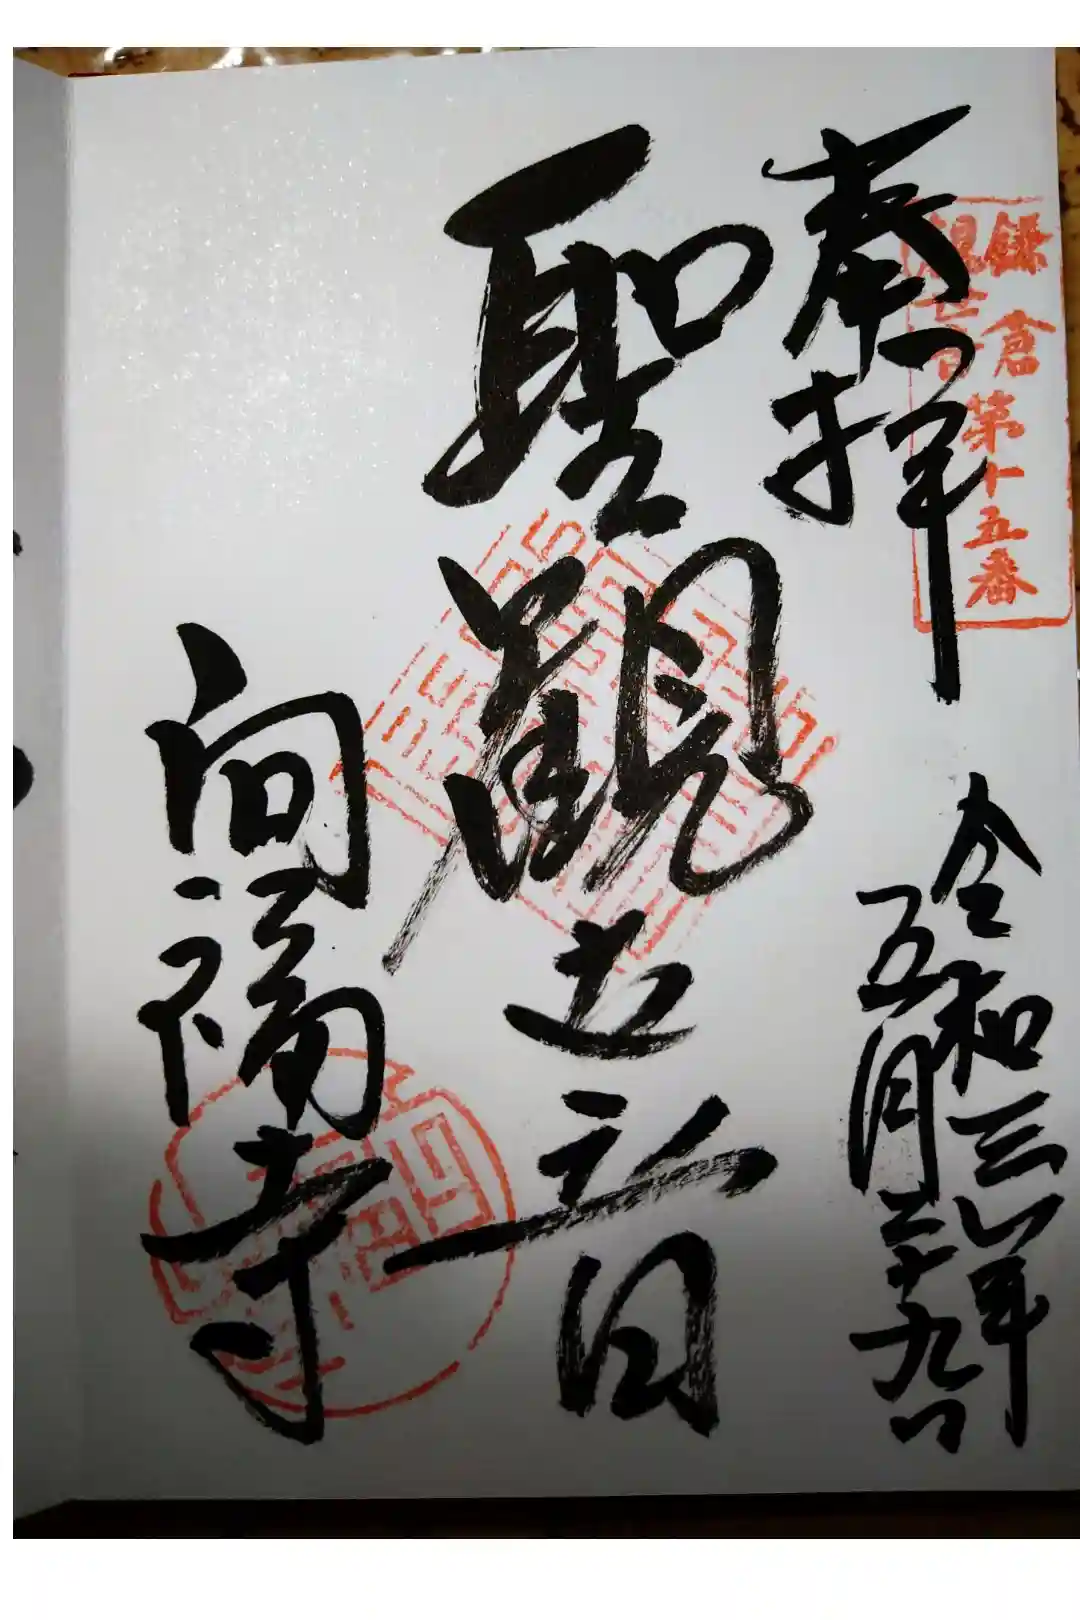 奉拝
鎌倉
観世音
第十五番
令和三年
五月二十九日
聖観世音
向福寺